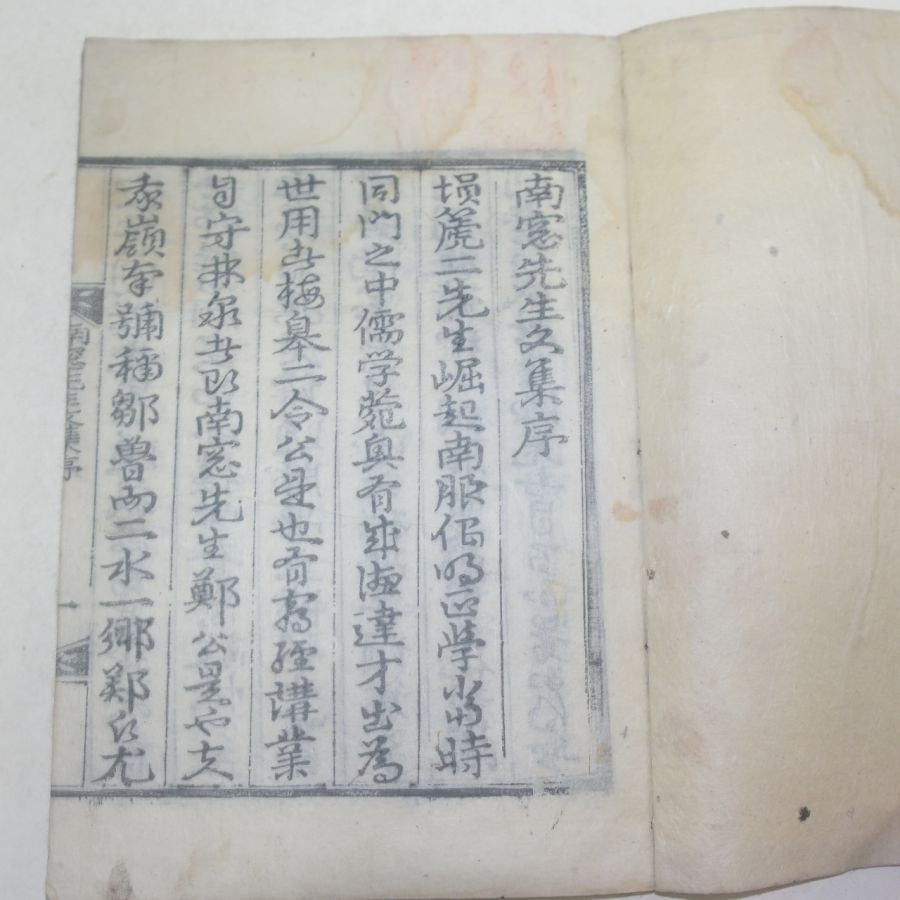 南窓先生文集序
塤篪二先生崛起南服倡明正學當時
同門之中儒学菀奥有成德達才出為
世用者梅皐二令公是也有窮經講業
自守林泉者即南窓先生鄭公是也夫
我嶺本號稱鄒魯而二水一鄉鄭氏尤
南窓先生文集序
一